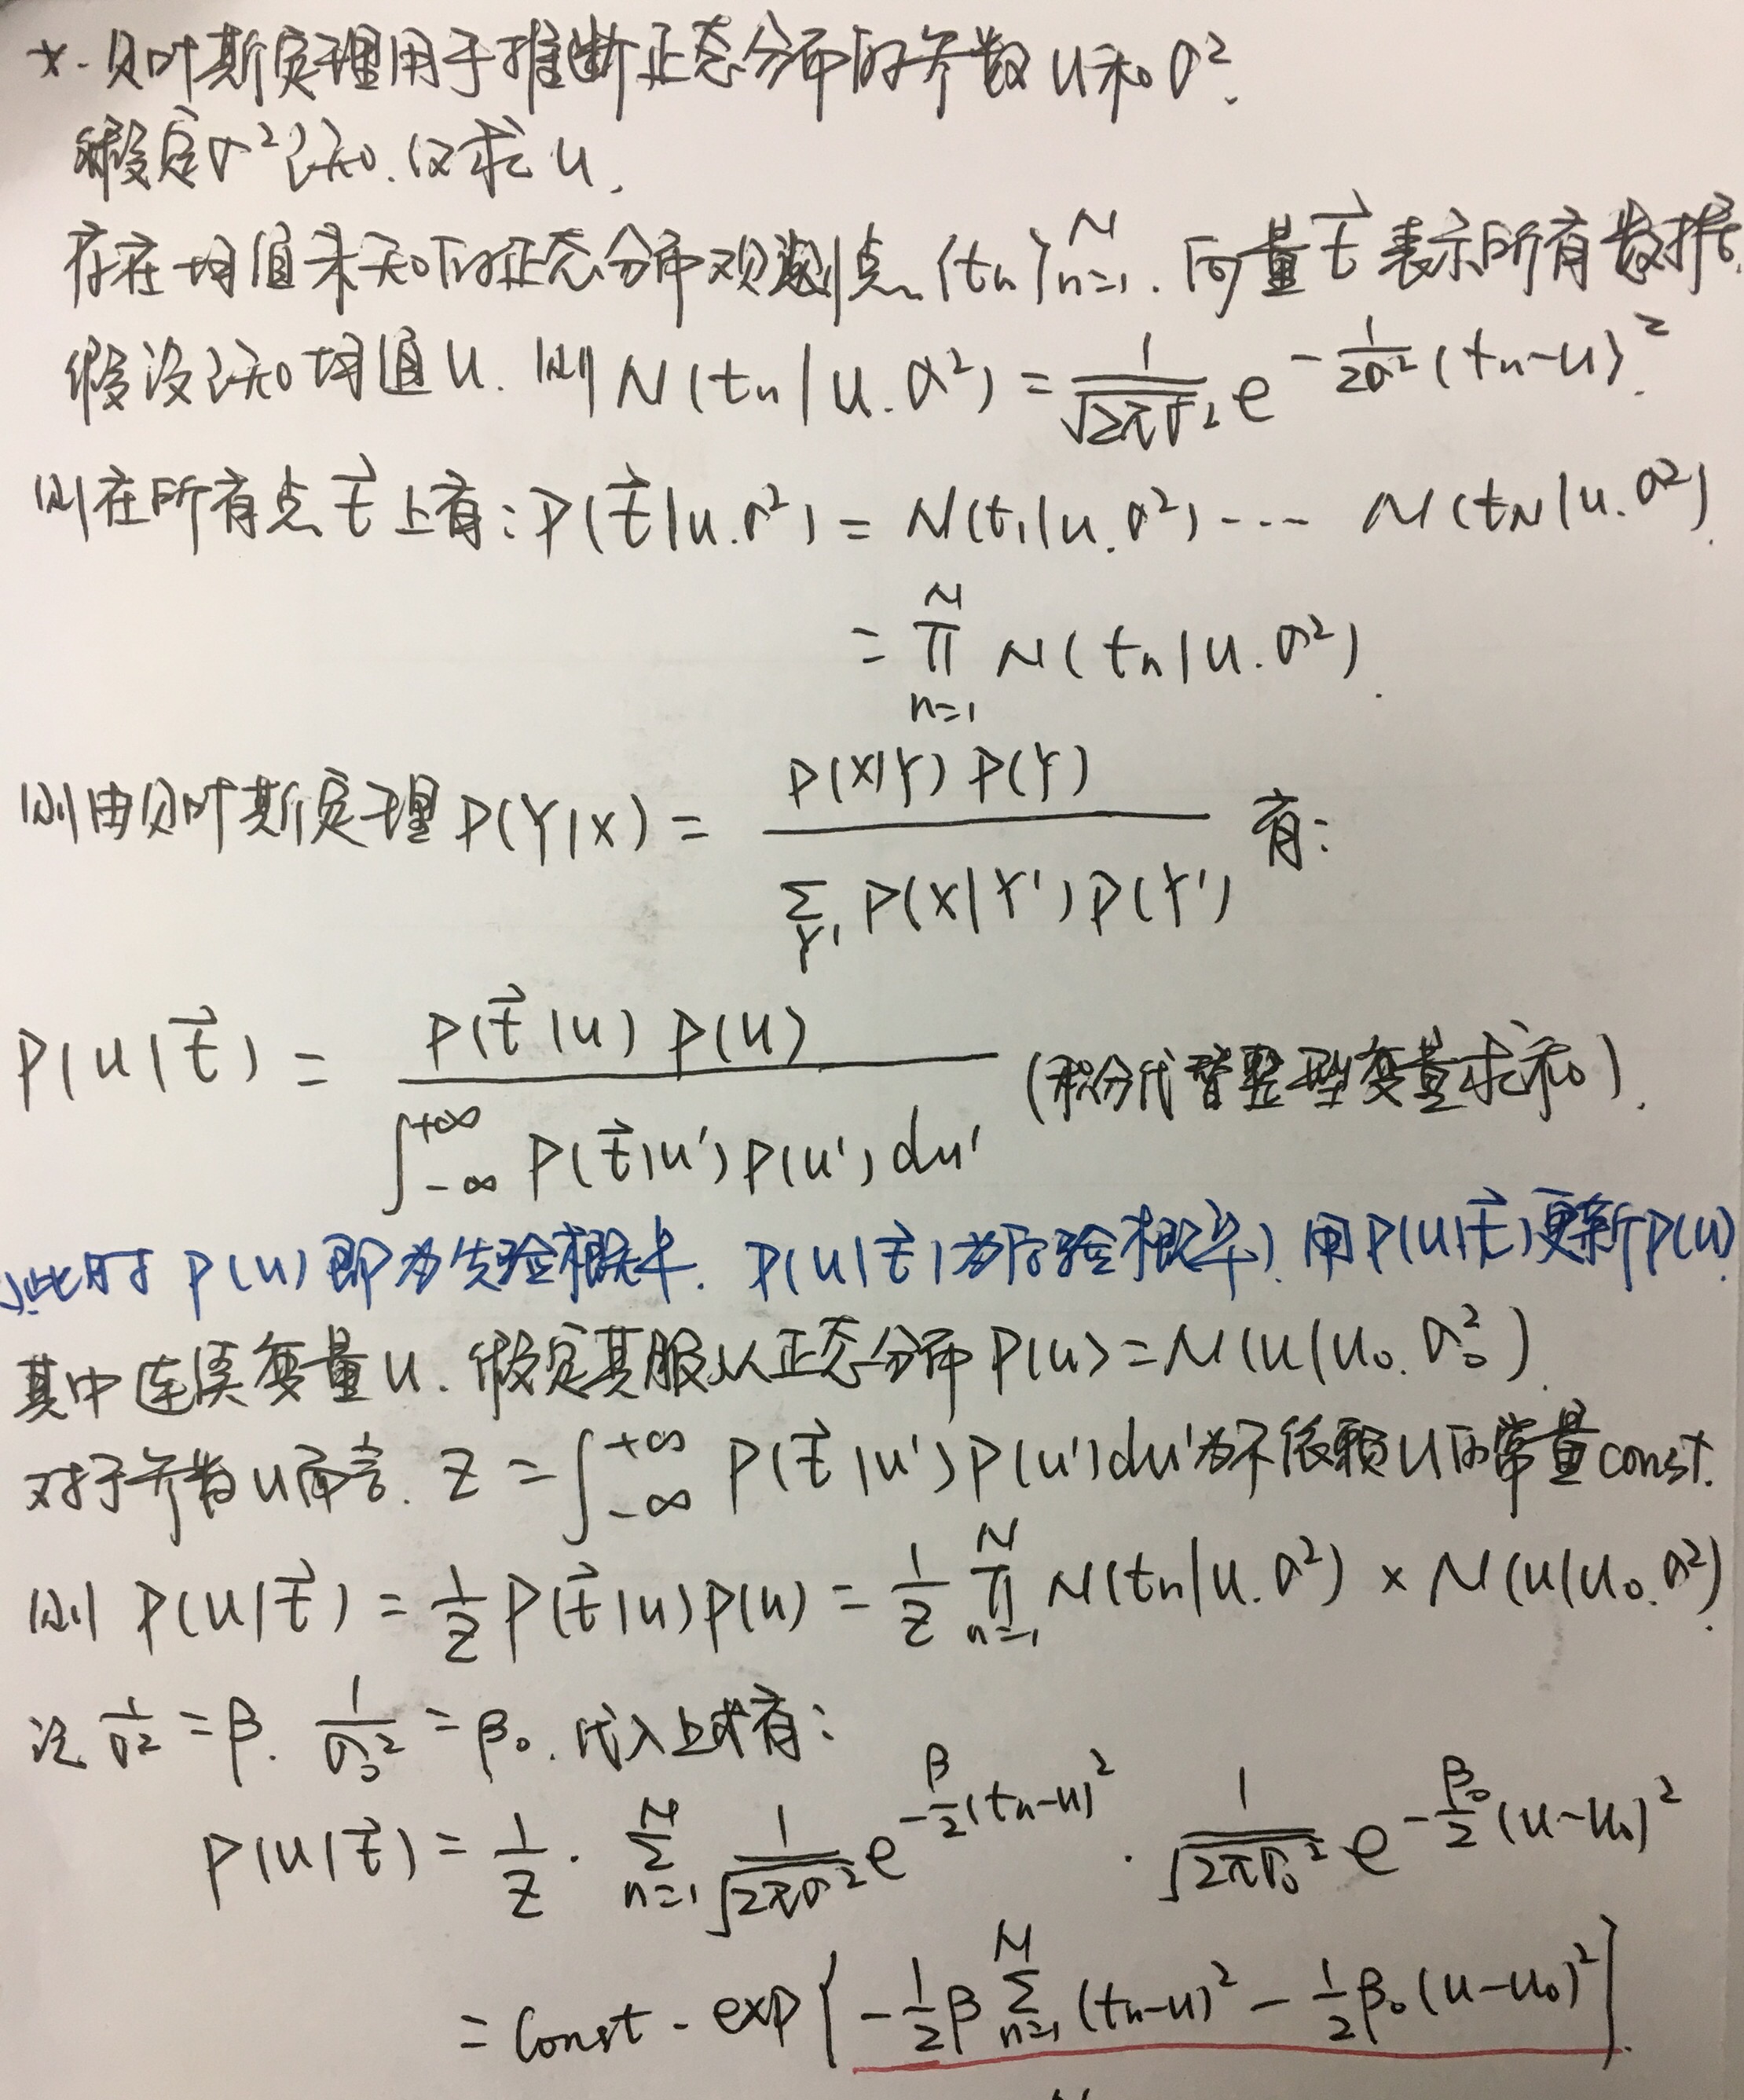 *. 贝叶斯定理用于推断正态分布的参数 u和σ².
假定σ²已知.仅求u.
存在均值未知的正态分布观测点{tn}ₙ₌₁ᴺ. 向量t⃗表示所有数据.
假设已知均值u. 则 N(tn|u.σ²) = 1/√(2πσ²) e^{-1/(2σ²)(tn-u)²}.
则在所有点t⃗上有: P(t⃗|u.σ²) = N(t₁|u.σ²)---- N(tN|u.σ²).
= ∏ₙ₌₁ᴺ N(tn|u.σ²).
则由贝叶斯定理 P(Y|X) = P(X|Y)P(Y) / Σ_Y' P(X|Y')P(Y') 有:
P(u|t⃗) = P(t⃗|u) P(u) / ∫₋∞⁺∞ P(t⃗|u')P(u')du' (积分代替整型变量求和).
此时 P(u) 即为先验概率. P(u|t⃗)为后验概率) 用P(u|t⃗)更新P(u).
其中连续变量u. 假定其服从正态分布 P(u)=N(u|u₀.σ₀²).
对于参数u而言. Z = ∫₋∞⁺∞ P(t⃗|u')P(u')du'为不依赖u的常量const.
则 P(u|t⃗) = 1/Z P(t⃗|u)P(u) = 1/Z ∏ₙ₌₁ᴺ N(tn|u.σ²) × N(u|u₀.σ²).
记 1/σ² = β. 1/σ₀² = β₀. 代入上式有:
P(u|t⃗) = 1/Z · Σₙ₌₁ᴺ 1/√(2πσ²) e^{-β/2(tn-u)²} · 1/√(2πσ₀²) e^{-β₀/2(u-u₀)²}
= Const - exp{-1/2 β Σₙ₌₁ᴺ (tn-u)² - 1/2 β₀(u-u₀)²}.